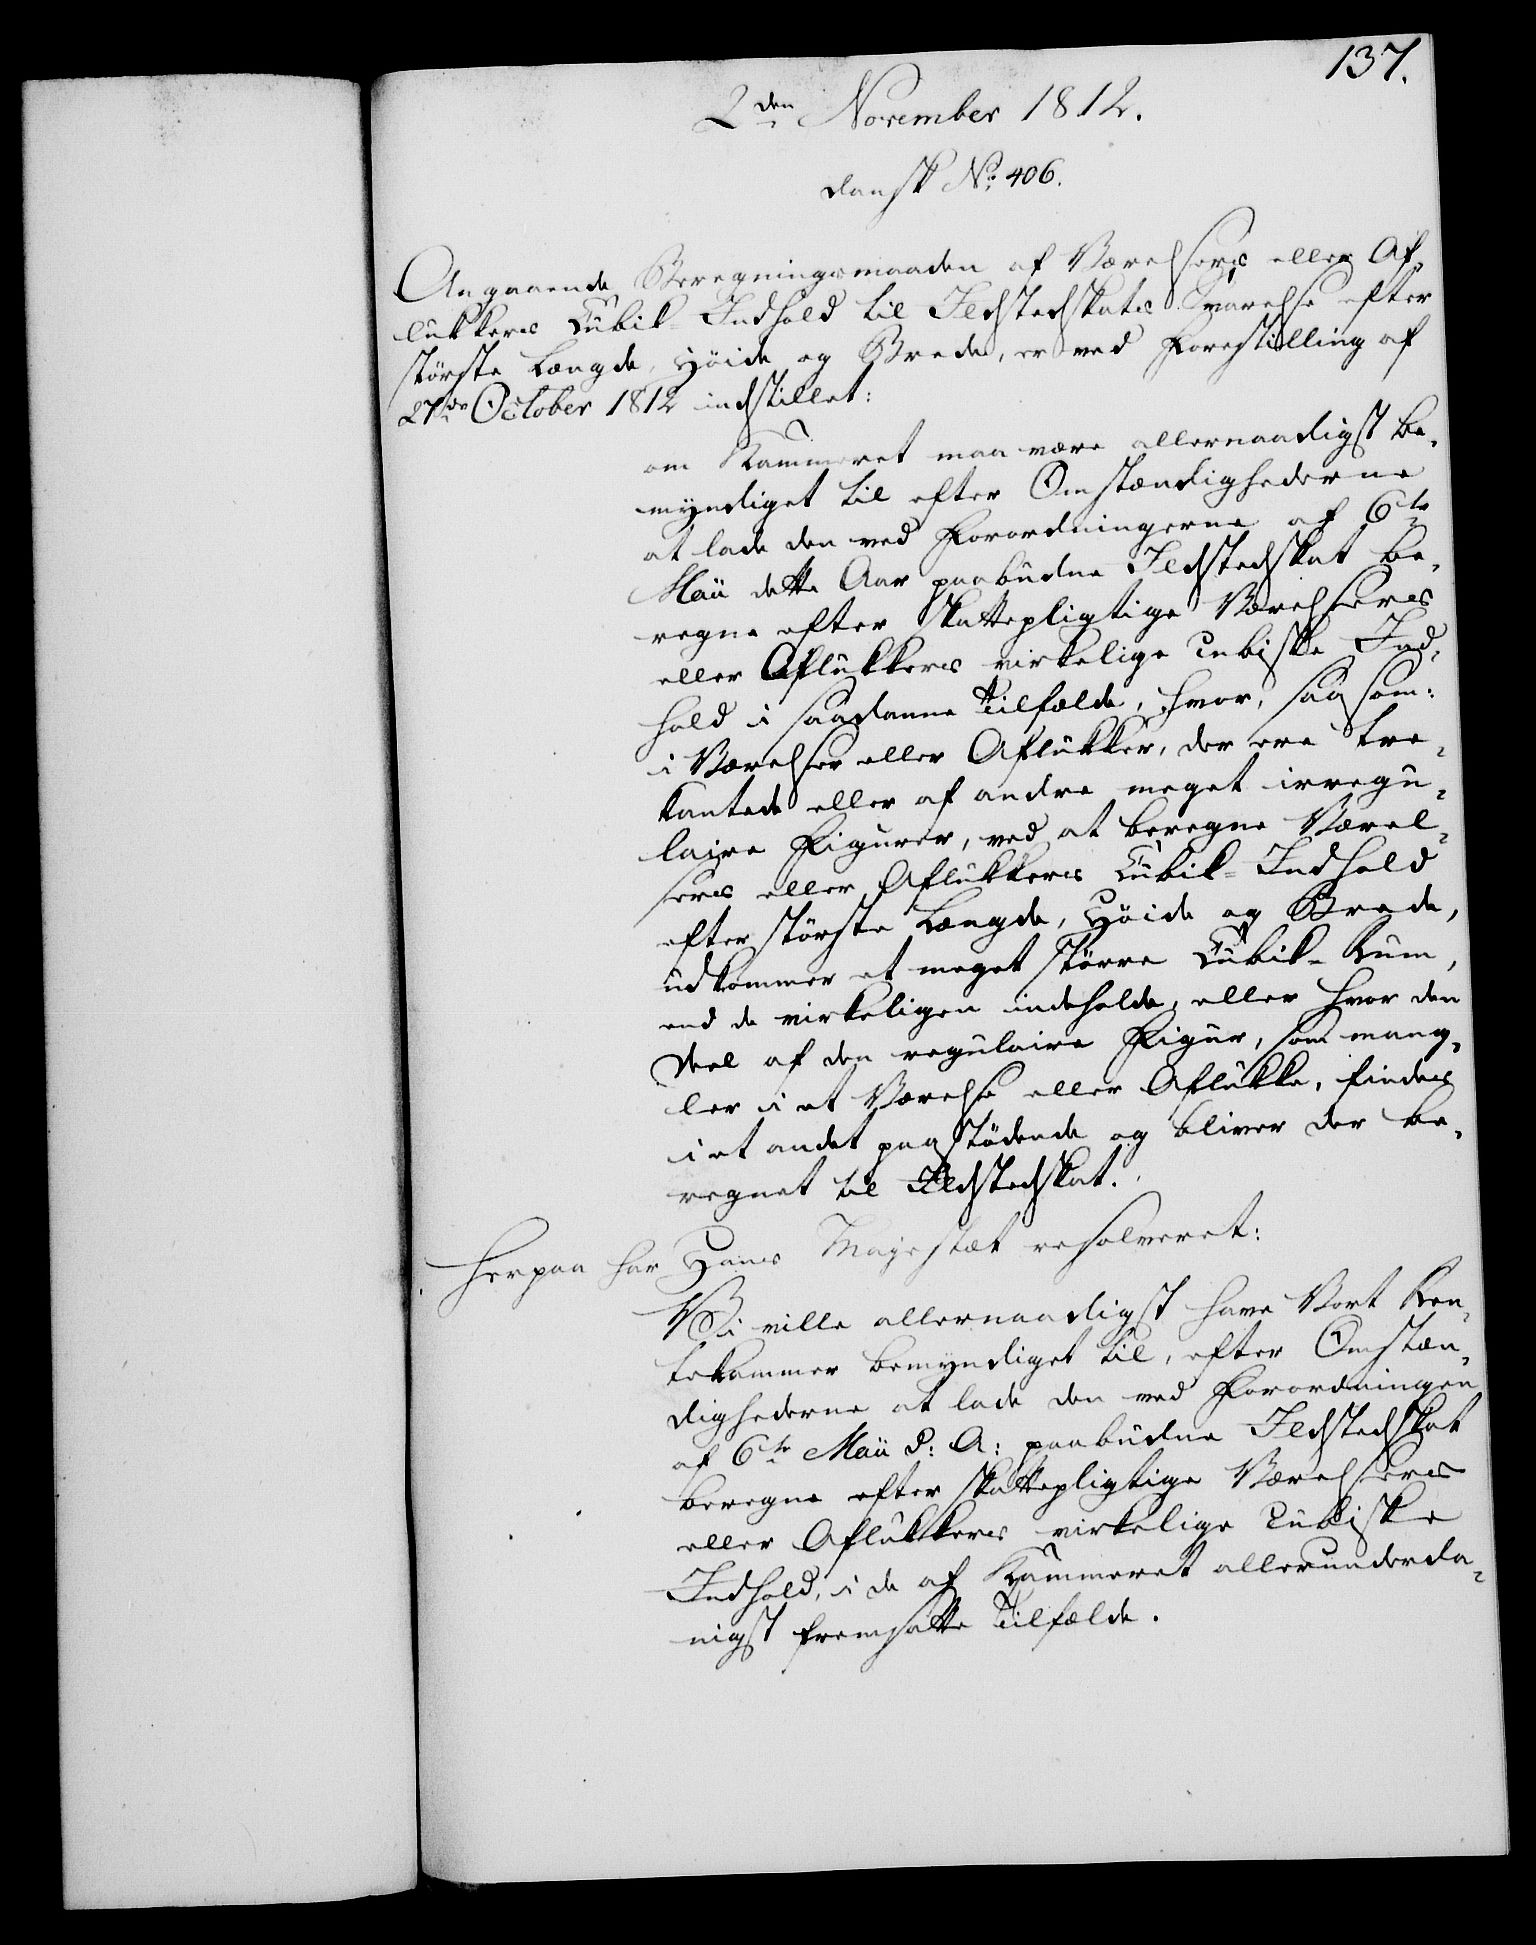 137.
2den November 1812.
dansk No. 406.
Angaaende Beregningsmaaden af Værelsers eller Af-
lukkers Cubik-Indhold til Ildstedskats Svarelse efter
störste Længde, Höide og Brede, er ved Forestilling af
27de October 1812 indstillet:
om Kammeret maa være allernaadigst be-
myndiget til efter Omstændighederne
at lade den ved Forordningerne af 6te
Maii dette Aar paabudne Ildstedskat be-
regne efter skattepligtige Værelsers
eller Aflukkers virkelige cubiske Ind-
hold i saadanne Tilfælde, hvor, saasom:
i Værelser eller Aflukker, der ere tre-
kantede eller af andre meget irregu-
laire Figurer, ved at beregne Værel-
sers eller Aflukkers Cubik-Indhold
efter störste Længde, Höide og Brede,
udkommer et meget större Cubik-Rum,
end de virkeligen indeholde, eller hvor den
Deel af den regulaire Figur, som mang-
ler i et Værelse eller Aflukke, findes
i et andet paastödende og bliver der be-
regnet til Ildstedskat.
Herpaa har Hans Majestæt resolveret:
Vi ville allernaadigst have Vort Ren-
tekammer bemyndiget til, efter Omstæn-
dighederne at lade den ved Forordningen
af 6te Maii d: A: paabudne Ildstedskat
beregne efter skattepligtige Værelsers
eller Aflukkers virkelige cubiske
Indhold, i de af Kammeret allerunderda-
nigst fremsatte Tilfælde.